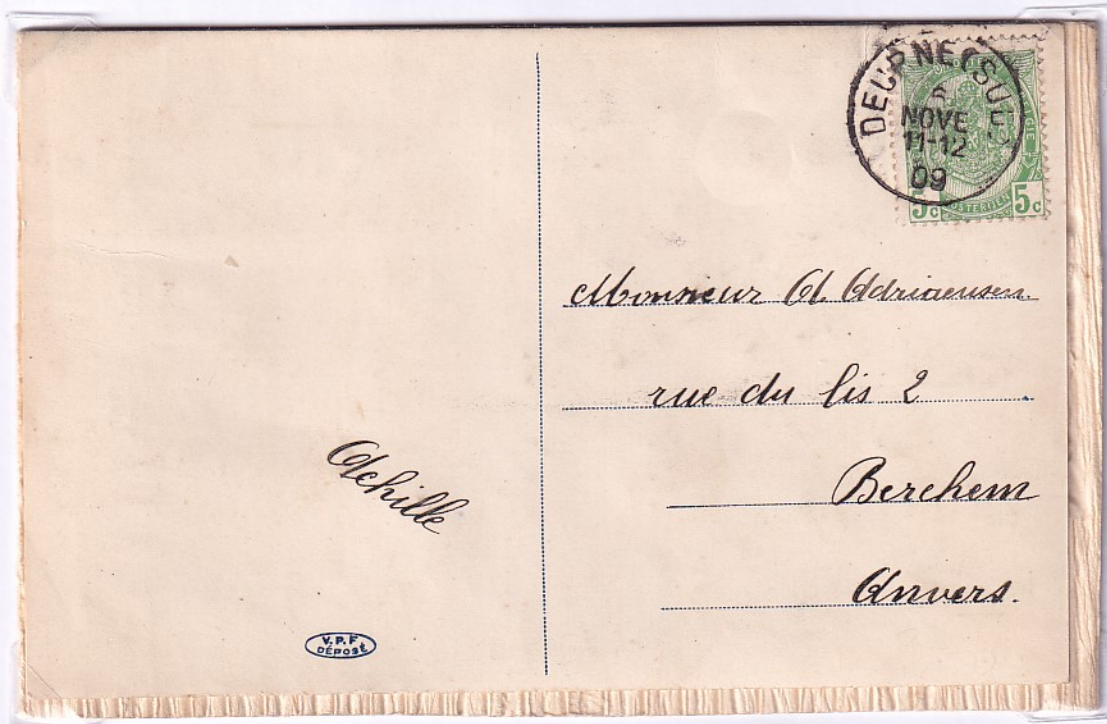 DEURNE (SUD)
NOVE
11-12
09
5c 5c
Monsieur A. Adriaensen.
rue du lis 2
Berchem
Anvers.
Achille
V.P.F
DÉPOSÉ